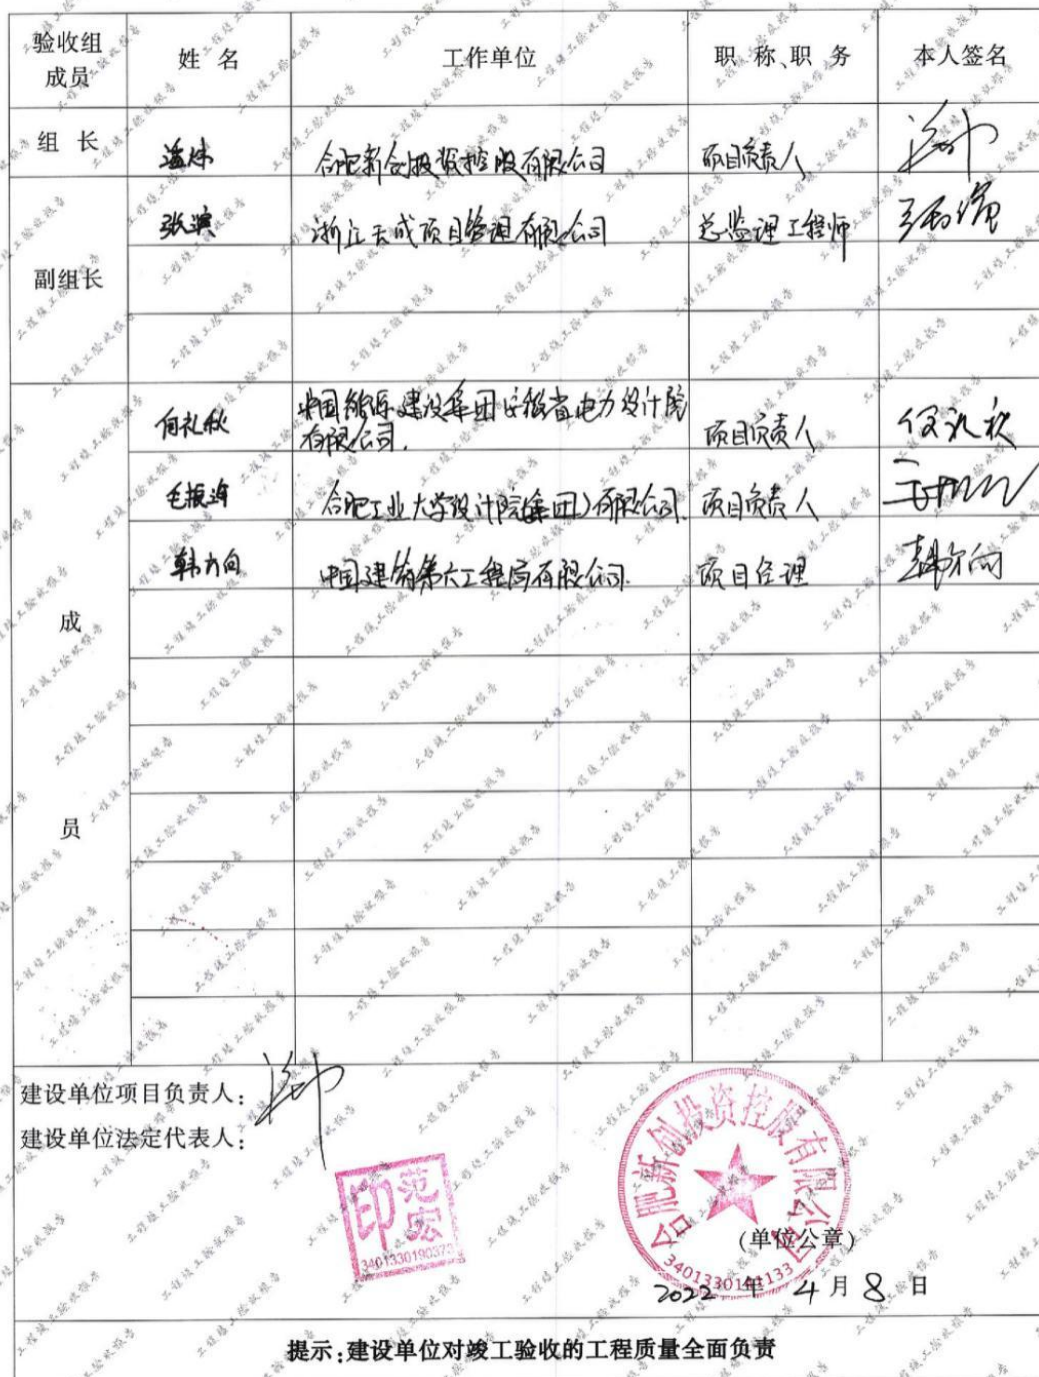 验收组
成员
姓 名
工作单位
职 称、职 务
本人签名
组 长
合肥新创投资控股有限公司
项目负责人
张滨
浙江天成项目管理有限公司
总监理工程师
副组长
何礼秋
中国能源建设集团安徽省电力设计院
有限公司.
项目负责人
何礼秋
毛振海
合肥工业大学设计院(集团)有限公司.
项目负责人
韩方向
中国建筑第六工程局有限公司.
项目经理
韩方向
成
员
建设单位项目负责人:
建设单位法定代表人:
范宏
印
3401330190373
合肥新创投资控股有限公司
(单位公章)
2022 年 4 月 8 日
提示:建设单位对竣工验收的工程质量全面负责
工程竣工验收报告